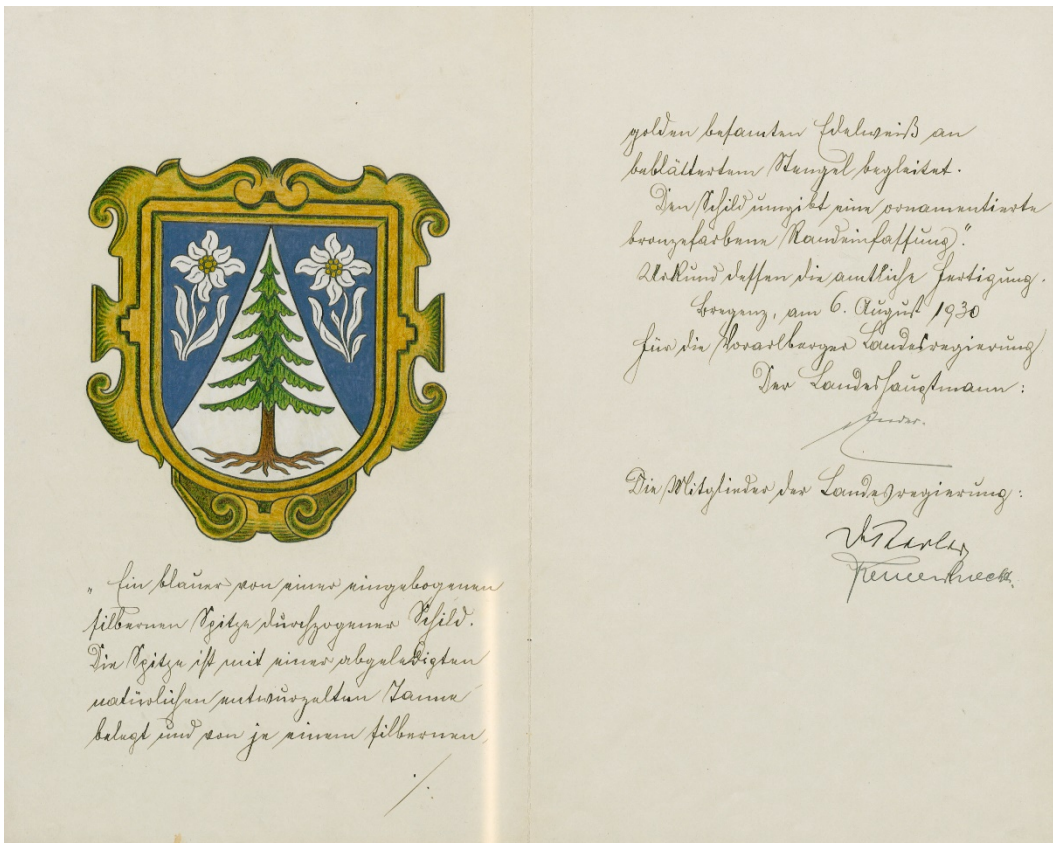 „Ein blauer von einer eingebogenen
silbernen Spitze durchzogener Schild.
Die Spitze ist mit einer abgeledigten
natürlichen entwurzelten Tanne
belegt und von je einem silbernen
./.
golden besamten Edelweiß an
beblättertem Stengel begleitet.
Den Schild umgibt eine ornamentierte
bronzefarbene Randeinfassung“.
Urkund dessen die amtliche Fertigung.
Bregenz, am 6. August 1930
Für die Vorarlberger Landesregierung
Der Landeshauptmann:
Die Mitglieder der Landesregierung: